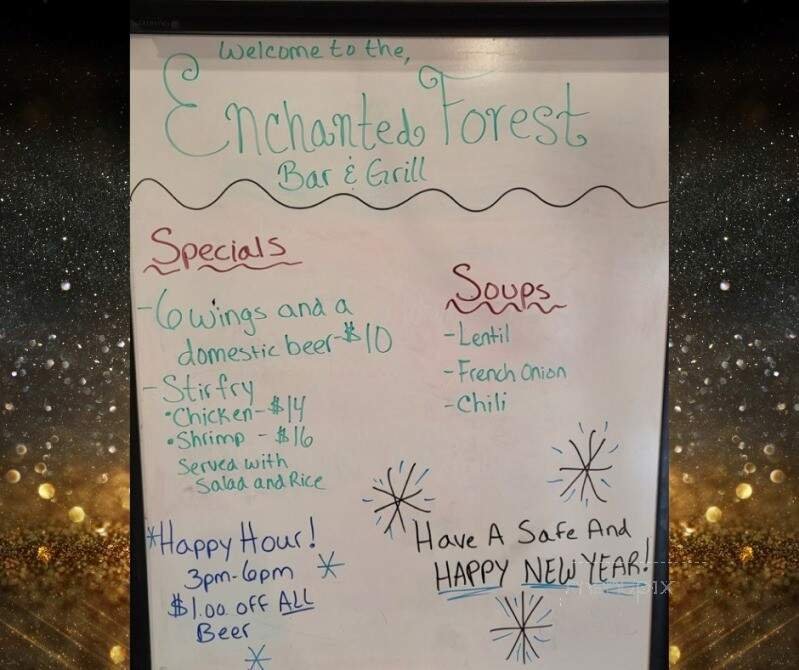 Welcome to the,
Enchanted Forest
Bar & Grill
Specials
- 6 wings and a
domestic beer - $10
- Stir fry
• Chicken - $14
• Shrimp - $16
Served with
Salad and Rice
Soups
- Lentil
- French Onion
- Chili
*Happy Hour!
3pm-6pm
$1.00 off ALL
Beer
Have A Safe And
HAPPY NEW YEAR!